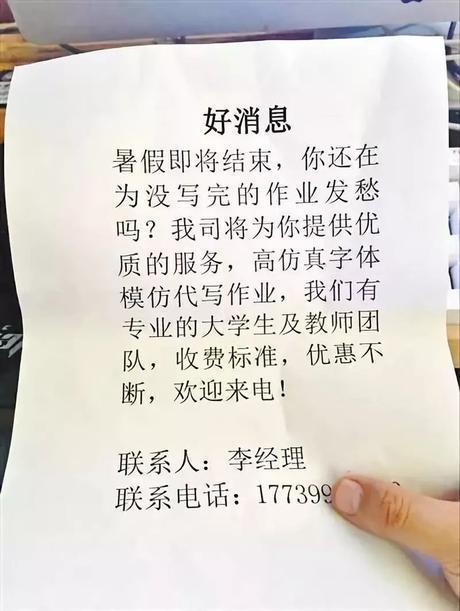 好消息
暑假即将结束，你还在
为没写完的作业发愁
吗？我司将为你提供优
质的服务，高仿真字体
模仿代写作业，我们有
专业的大学生及教师团
队，收费标准，优惠不
断，欢迎来电！
联系人：李经理
联系电话：177399